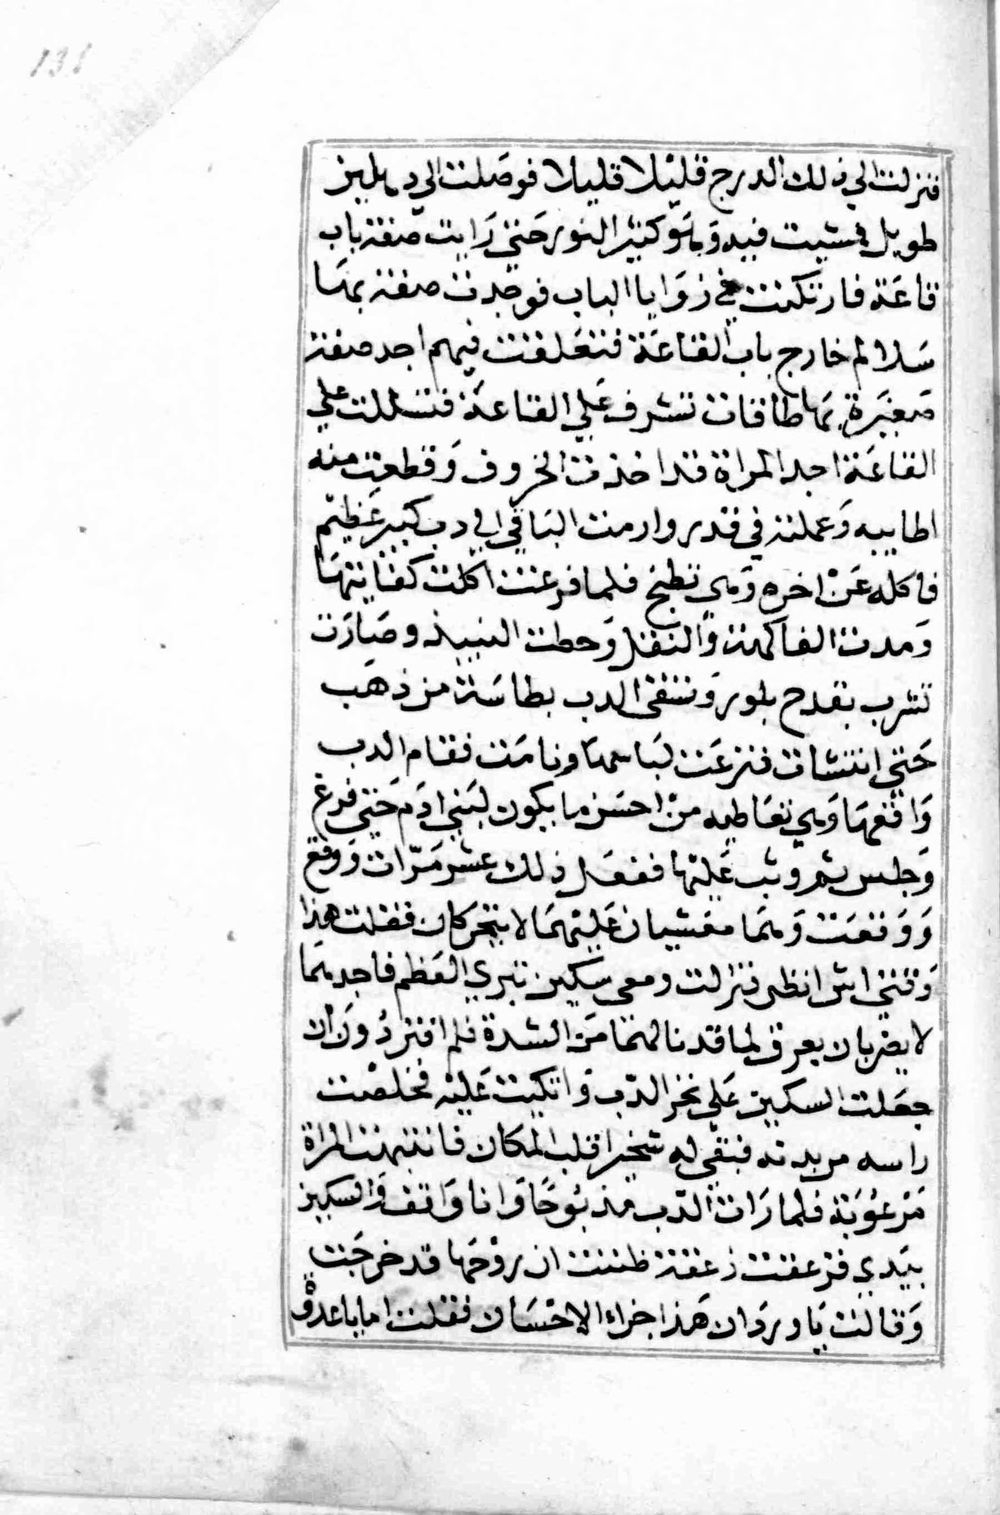 131
فنزلت الي ذلك الدرج قليلا قليلا فوصلت الي دهليز
طويل فمشيت فيه وهو كثير النور حتي رايت صفة باب
قاعة فارتكنت في زوايا الباب فوجدت صفة بها
سلالم خارج باب القاعة فتعلقت فيهم اجد صفة
صغيرة بها طاقات تشرف علي القاعة فتسللت علي
القاعة اجد المراة قد اخذت الخروف وقطعت منه
اطايبه وعملته في قدر وارمت الباقي الي دب كبير عظيم
فاكله عن اخره وهي تطبخ فلما فرغت اكلت كفايتها
ومدت الفاكهة والنقل وحطت النبيذ وصارت
تشرب بقدح بلور وتسقي الدب بطاسة من ذهب
حتي انتشات فنزعت لباسها ونامت فقام الدب
واقعها وهي تعاطيه من احسن ما يكون لبني ادم حتي فرغ
وجلس ثم وثب عليها ففعل ذلك عشر مرات ووقع
ووقعت وهما مغشيان عليهما لا يتحركان فقلت هذا
وقتي اش انظر فنزلت ومعي سكين تبري العظم فاجدهما
لا يضربان بعرق لما قد نالهما من الشدة فلم افتر دون ان
جعلت السكين علي نحر الدب واتكيت عليه فخلصت
راسه من بدنه فبقي له شخير اقلب المكان فانتبهت المراة
مرعوبة فلما رات الدب مذبوحا وانا واقف والسكين
بيدي فزعقت زعقة ظننت ان روحها قد خرجت
وقالت يا وردان هذا جزاء الاحسان فقلت لها يا عدوة